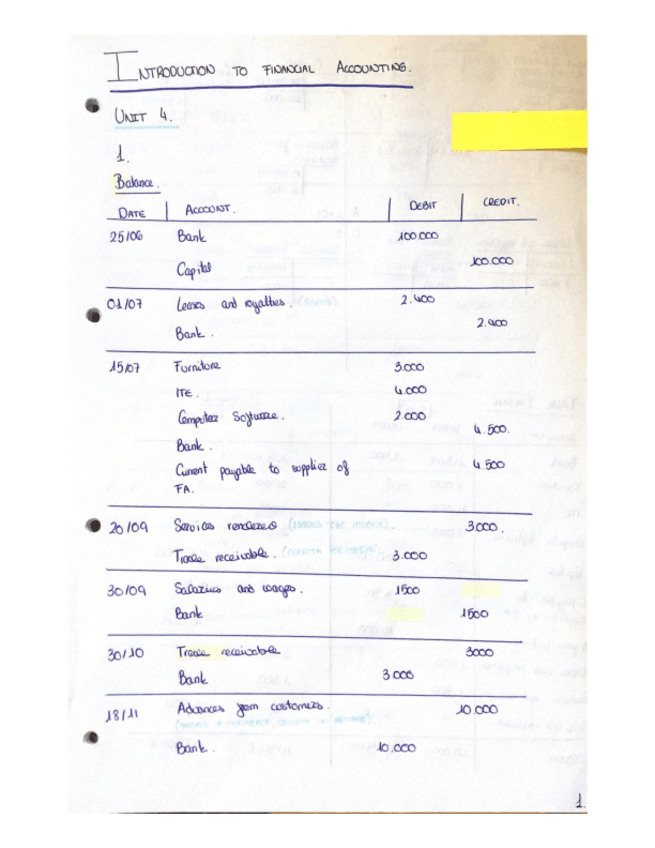 INTRODUCTION TO FINANCIAL ACCOUNTING.
UNIT 4.
1.
Balance.
DATE ACCOUNT. DEBIT CREDIT.
25/06 Bank 100.000
Capital 100.000
01/07 Leases and royalties. 2.400
Bank. 2.400
15/07 Furniture 3.000
ITE. 4.000
Computer Software. 2.000
Bank. 4.500.
Current payable to supplier of 4.500
FA.
20/09 Services rendered 3000.
Trade receivable. 3.000
30/09 Salaries and wages. 1500
Bank 1500
30/10 Trade receivable 3000
Bank 3000
18/11 Advances from customers. 10.000
Bank. 10.000
1.